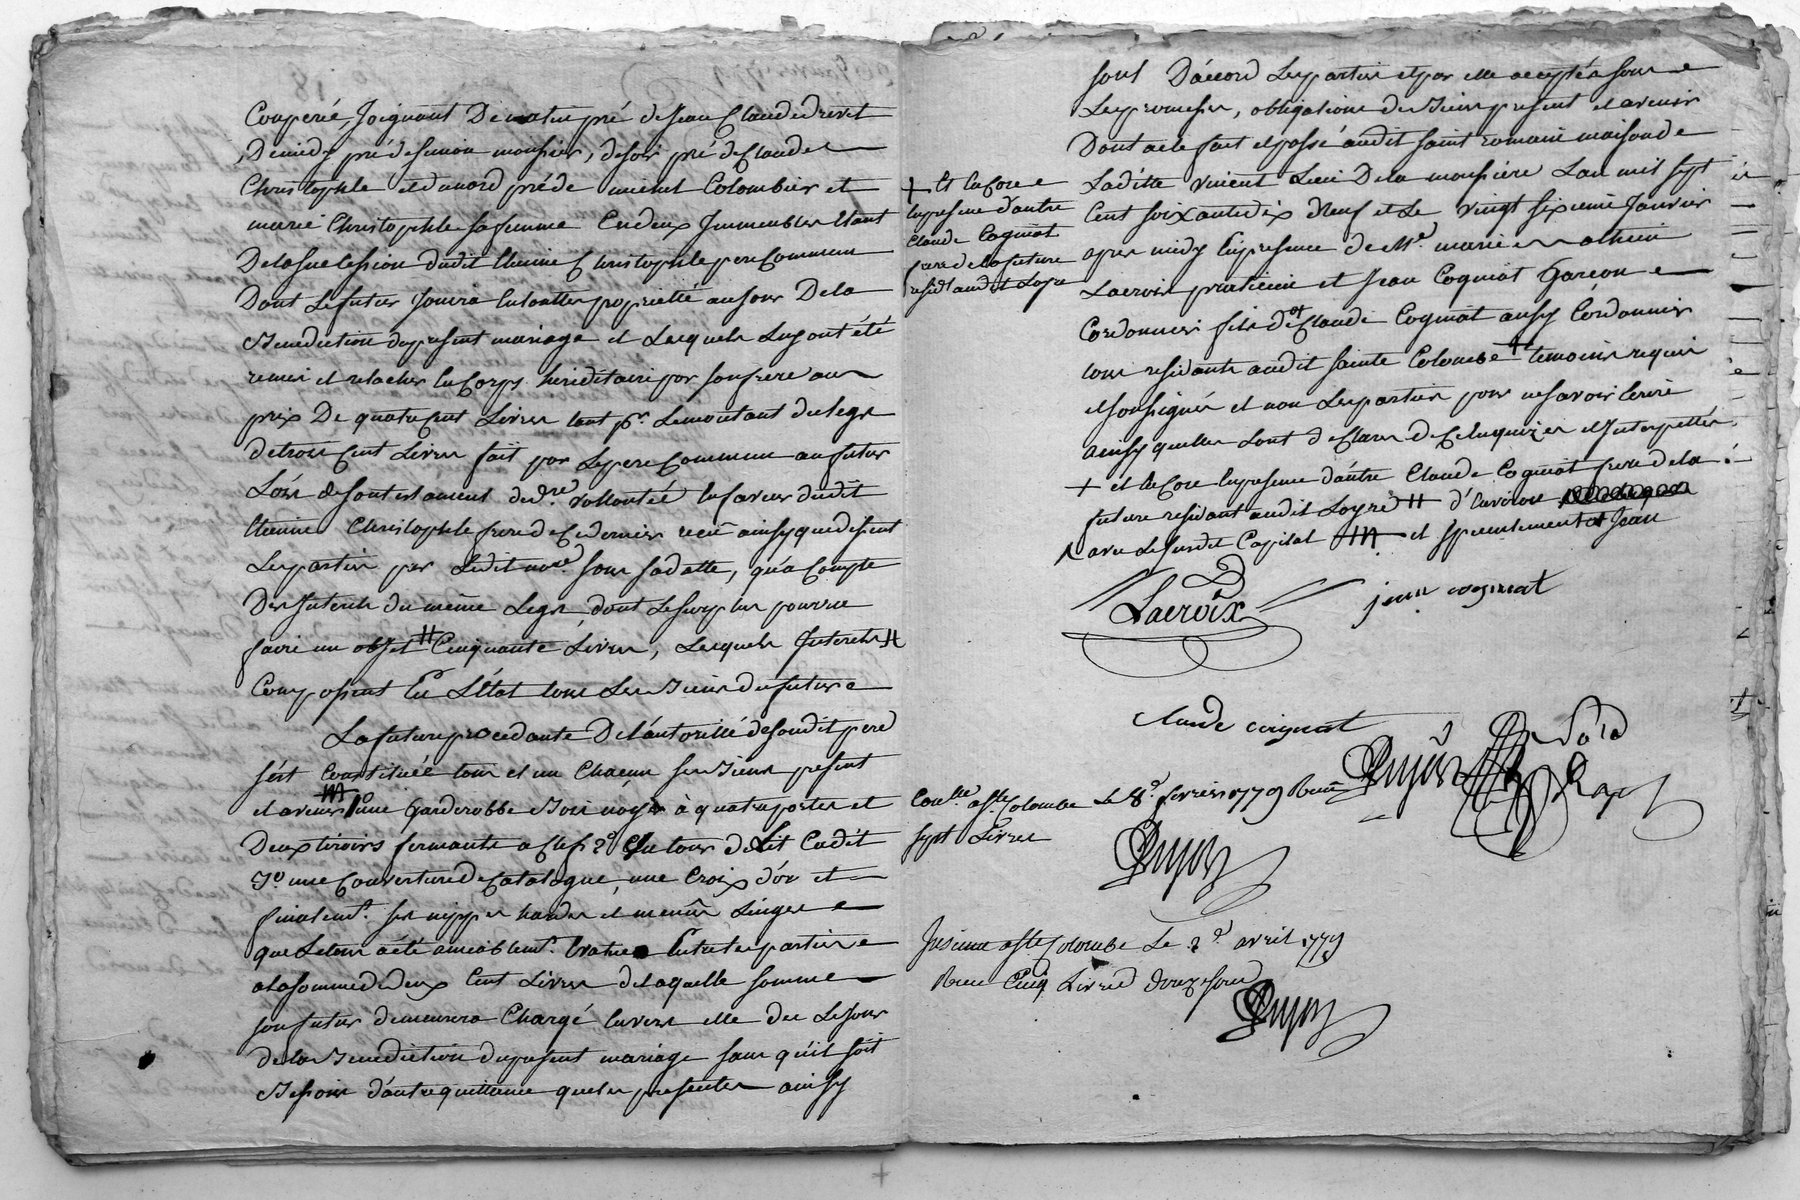 Couperié, Joignant De matin pré de Jean Claude drevet
Demidy pré de Simon monsier, de soir pré de Claude
Christophle et du nord pré de michel Colombier et
marie Christophle sa femme Ces deux Immeubles Etant
De la succession dudit Etienne Christophle pere Commun
Dont Le futur Jouira En toutte proprieté au Jour De la
Benediction du present mariage et Lesquels Luy ont été
remis et relachés En Corps hereditaire par son frere au
prix De quatre Cent Livres tant pr. Le montant du legs
de trois Cent Livres fait par Le pere Commun au futur
Lors de son testament de dre. vollonté En faveur dudit
Etienne Christophle frere de Ce dernier recû ainsy que disent
Les parties par Ledit nore. sous sa datte, qu'a Compte
Des Interets du même Legs, dont Le surplus pourra
faire un objet H Cinquante Livres, Lesquels Interets H
Composent En L'Etat tous Les Biens du futur
La future procedante De l'autorité de son dit pere
s'est Constituée tous et un Chacun ses Biens present
et avenir 1o une Garderobbe Bois noyer à quatre portes et
Deux tiroirs fermante a Clefs 2o Un tour de Lit Cadit
3o une Couverture de Catalogne, une Croix d'or et
finalemt. ses nippes hardes et menûs Linges
que Le tout a été amiablemt. Evalué Entre les parties
a la somme de deux Cent Livres de laquelle somme
son futur demeurera Chargé Envers elle dès Le Jour
de la Benediction du present mariage sans qu'il soit
Besoin d'autre quittance que les presentes ainsy
sont D'accord Les parties et par elle acceptés sous
Les promesses, obligations des Biens present et avenir
Dont acte fait et passé audit saint romain maison de
Laditte vincent Lieu De la monsiere L'an mil sept
Cent soixante dix Neuf et Le vingt sixieme Janvier
apres midy En presence de Me. marie mathieu
Lacroix praticien et Jean Cogniat Garcon
Cordonnier fils d'et Claude Cogniat aussy Cordonnier
tous residants audit sainte Colombe + temoins requis
et soussignés et non Les parties pour ne savoir Ecrire
ainsy quelles L'ont declaré de Ce Enquizes et Interpellés
+ et En Core En presence d'autre Claude Cogniat frere de la
future residant audit Loyre H d'Environ
avec Le susdit Capital et specialement Jean
+ Et En Core
En presence d'autre
Claude Cogniat
frere de la future
residt audit Loyre
Lacroix
jean cogniat
claude cogniat
Dujon
Contle. a Ste Colombe Le 8e. fevrier 1779 Recû
sept Livres
Dujon
Insinué a Ste Colombe Le 2e avril 1779
Recu Cinq Livres douze sous
Dujon